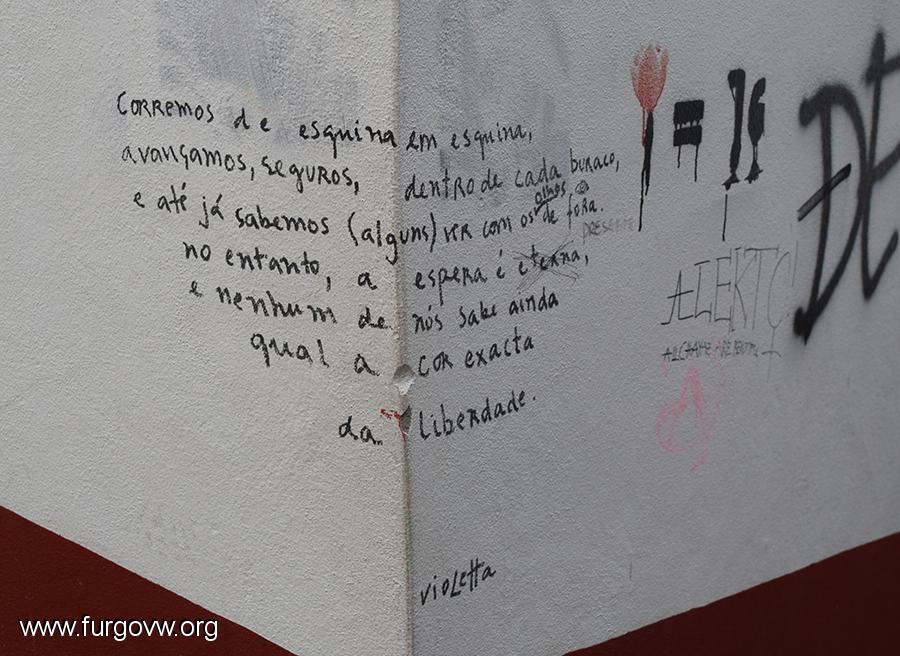 Corremos de esquina em esquina,
avançamos, seguros, dentro de cada buraco,
olhos
e até já sabemos (alguns) ver com os de fora.
PRESENTE
no entanto, a espera é eterna,
e nenhum de nós sabe ainda
qual a cor exacta
da liberdade.
violetta
=
DE
ALEKTO
A
www.furgovw.org